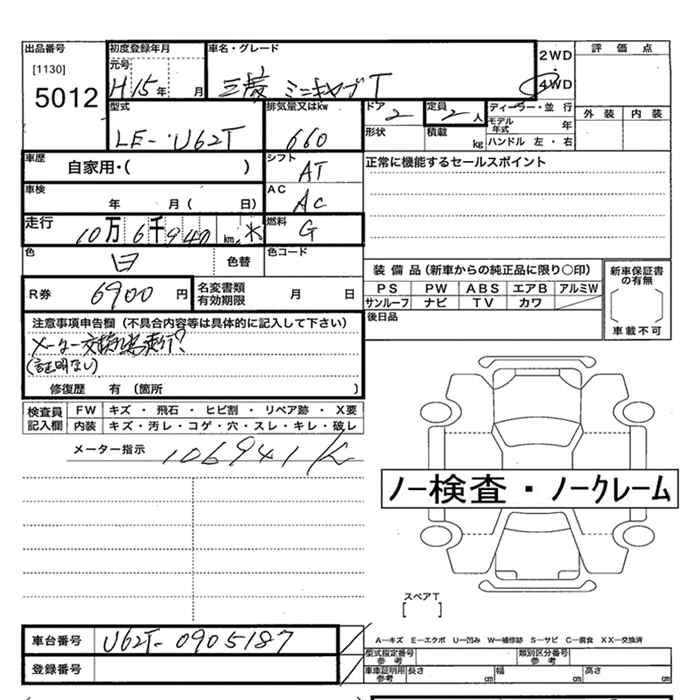 出品番号
[1130]
5012
初度登録年月
元号
H15年 月
車名・グレード
三菱 ミニキャブT
2WD
4WD
評価点
外装 内装
型式
LE-U62T
排気量又はkw
660
ドア 2
定員 2人
形状
積載 kg
ディーラー・並行
モデル年式 年
ハンドル 左・右
車歴
自家用・( )
シフト
AT
正常に機能するセールスポイント
車検
年 月( 日)
AC
AC
走行
10万6千940km *
燃料
G
色
白
色替
色コード
装備品(新車からの純正品に限り○印)
PS PW ABS エアB アルミW
サンルーフ ナビ TV カワ
新車保証書の有無
[ ]
車載不可
R券
6900円
名変書類有効期限
月 日
後日品
注意事項申告欄(不具合内容等は具体的に記入して下さい)
メーター交換の為走行?
(証明なし)
修復歴 有(箇所 )
検査員記入欄
FW キズ・飛石・ヒビ割・リペア跡・X要
内装 キズ・汚レ・コゲ・穴・スレ・キレ・破レ
メーター指示
106941K
ノー検査・ノークレーム
スペアT
[ ]
車台番号 U62T-0905187
登録番号
A−キズ E−エクボ U−凹み W−補修跡 S−サビ C−腐食 XX−交換済
型式指定番号 参考
類別区分番号 参考
車庫証明用 参考
長さ cm 幅 cm 高さ cm